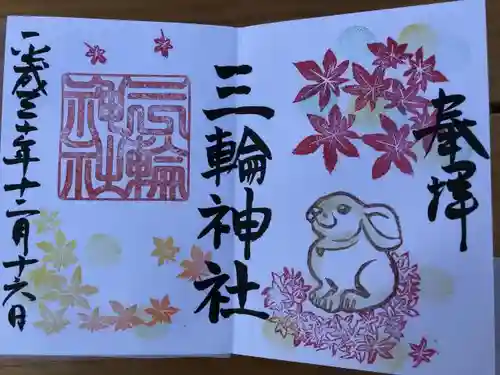 奉拝
三輪神社
三輪
神社
平成三十年十二月十六日